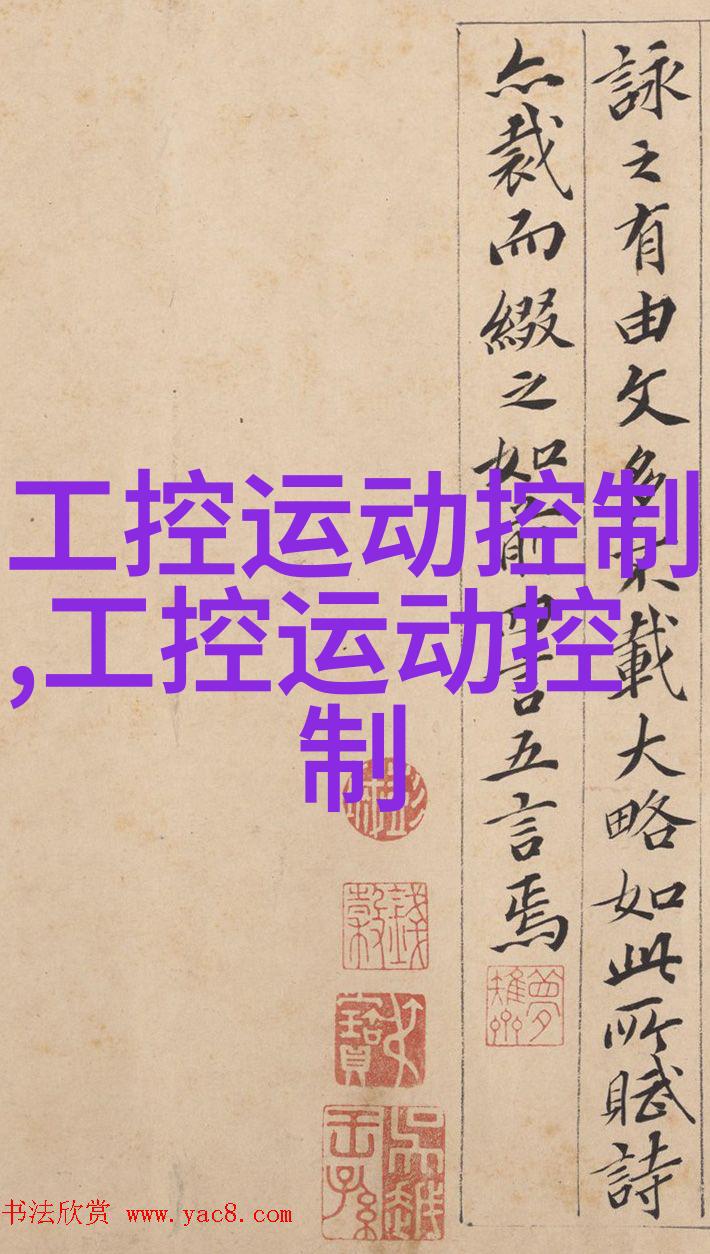 詠之有由文多不載大略如此所賦詩
亦裁而綴之如前四言五言焉
工控运动控制
,工控运动控
制
书法欣赏 www.yac8.com